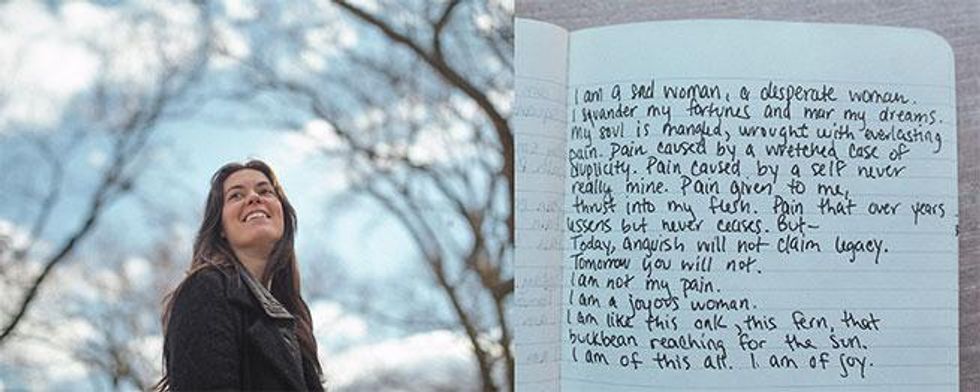 I am a sad woman, a desperate woman.
I squander my fortunes and mar my dreams.
My soul is mangled, wrought with everlasting
pain. Pain caused by a wretched case of
duplicity. Pain caused by a self never
really mine. Pain given to me,
thrust into my flesh. Pain that over years
lessens but never ceases. But—
Today, anguish will not claim legacy.
Tomorrow you will not.
I am not my pain.
I am a joyous woman.
I am like this oak, this fern, that
buckbean reaching for the sun.
I am of this all. I am of joy.